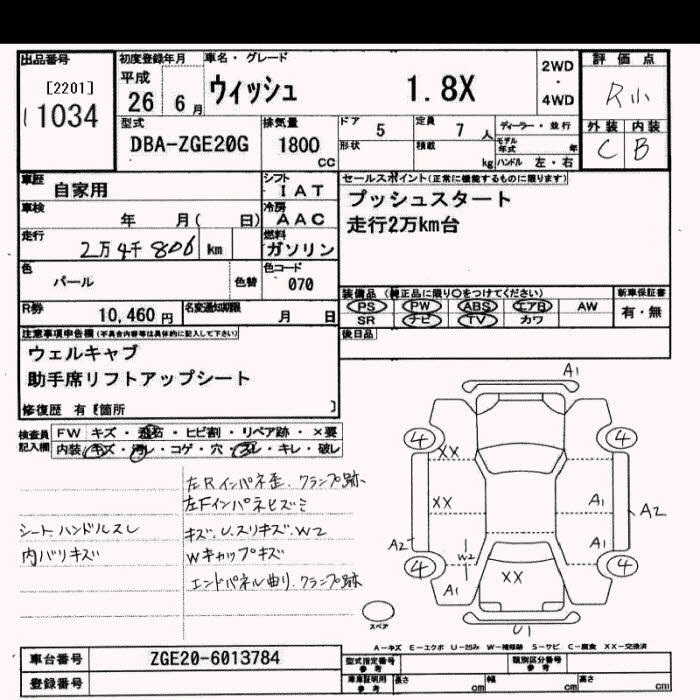 出品番号
[2201]
11034
初度登録年月
平成
26 6月
車名・グレード
ウィッシュ 1.8X
2WD
・
4WD
評価点
R小
外装 内装
C B
型式
DBA-ZGE20G
排気量
1800
cc
ドア 5
定員 7人
形状
積載 kg
ディーラー・並行
モデル年式 年
ハンドル 左・右
車歴
自家用
シフト
IAT
車検
年 月( 日)
冷房
AAC
走行
2万4千806 km
燃料
ガソリン
色
パール
色替
色コード
070
R券
10,460円
名変通知期限
月 日
セールスポイント(正常に機能するものに限ります)
プッシュスタート
走行2万km台
装備品(純正品に限り○をつけてください)
PS PW ABS エアB AW
SR ナビ TV カワ
新車保証書
有・無
後日品
注意事項申告欄(不具合内容等は具体的に記入して下さい)
ウェルキャブ
助手席リフトアップシート
修復歴 有 [箇所 ]
検査員記入欄
FW キズ・飛石・ヒビ割・リペア跡・×要
内装 キズ・汚レ・コゲ・穴・スレ・キレ・破レ
左Rインパネ歪、クランプ跡
左Fインパネヒズミ
シート、ハンドルスレ
キズ、U、スリキズ、W2
内バリキズ
Wキャップキズ
エンドパネル曲り、クランプ跡
A1
4 4
XX
XX A1
A2
A2 W2 A1
4 4
A1 XX
U1
スペア
A-キズ E-エクボ U-凹み W-補修跡 S-サビ C-腐食 XX-交換済
車台番号
ZGE20-6013784
登録番号
型式指定番号
参考
類別区分番号
参考
車庫証明用
参考
長さ cm 幅 cm 高さ cm